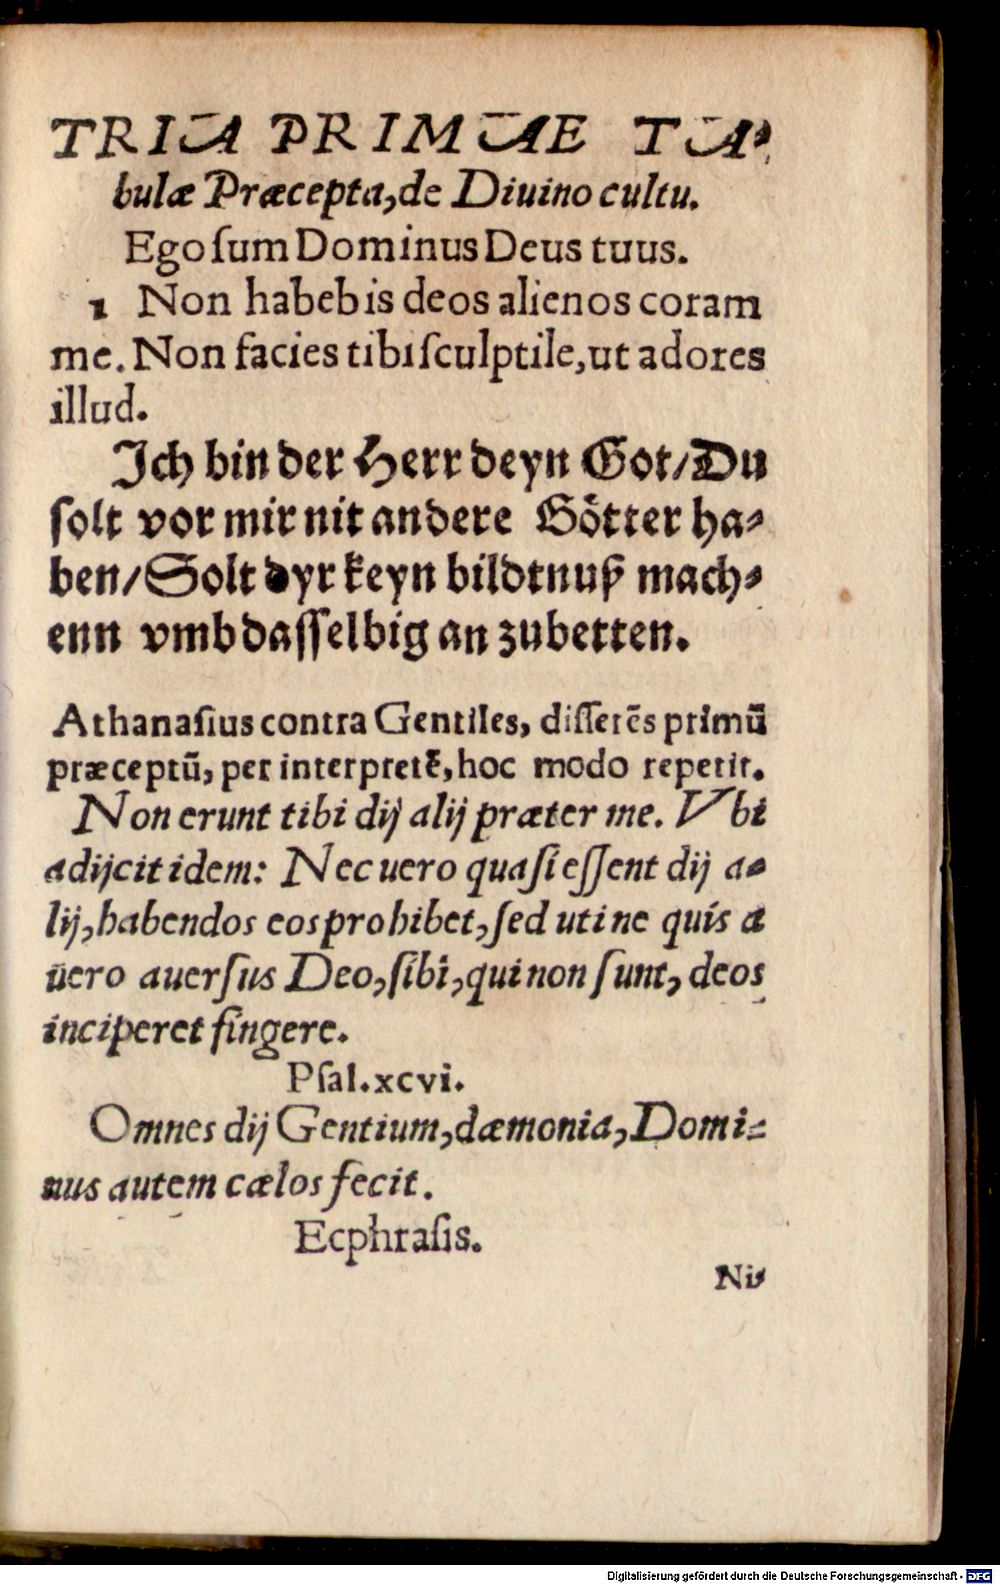 TRIA PRIMAE TA-
bulæ Præcepta, de Diuino cultu.
Ego ſum Dominus Deus tuus.
1 Non habebis deos alienos coram
me. Non facies tibi ſculptile, ut adores
illud.
Ich bin der Herr deyn Got/Du
ſolt vor mir nit andere Götter ha-
ben/Solt dyr keyn bildtnuß mach-
enn vmb daſſelbig an zubetten.
Athanaſius contra Gentiles, diſſerẽs primũ
præceptũ, per interpretẽ, hoc modo repetit.
Non erunt tibi dij alij præter me. Vbi
adijcit idem: Nec uero quaſi eſſent dij a-
lij, habendos eos prohibet, ſed uti ne quis a
uero auerſus Deo, ſibi, qui non ſunt, deos
inciperet fingere.
Pſal. xcvi.
Omnes dij Gentium, dæmonia, Domi-
nus autem cælos fecit.
Ecphraſis.
Ni-
Digitalisierung gefördert durch die Deutsche Forschungsgemeinschaft - DFG